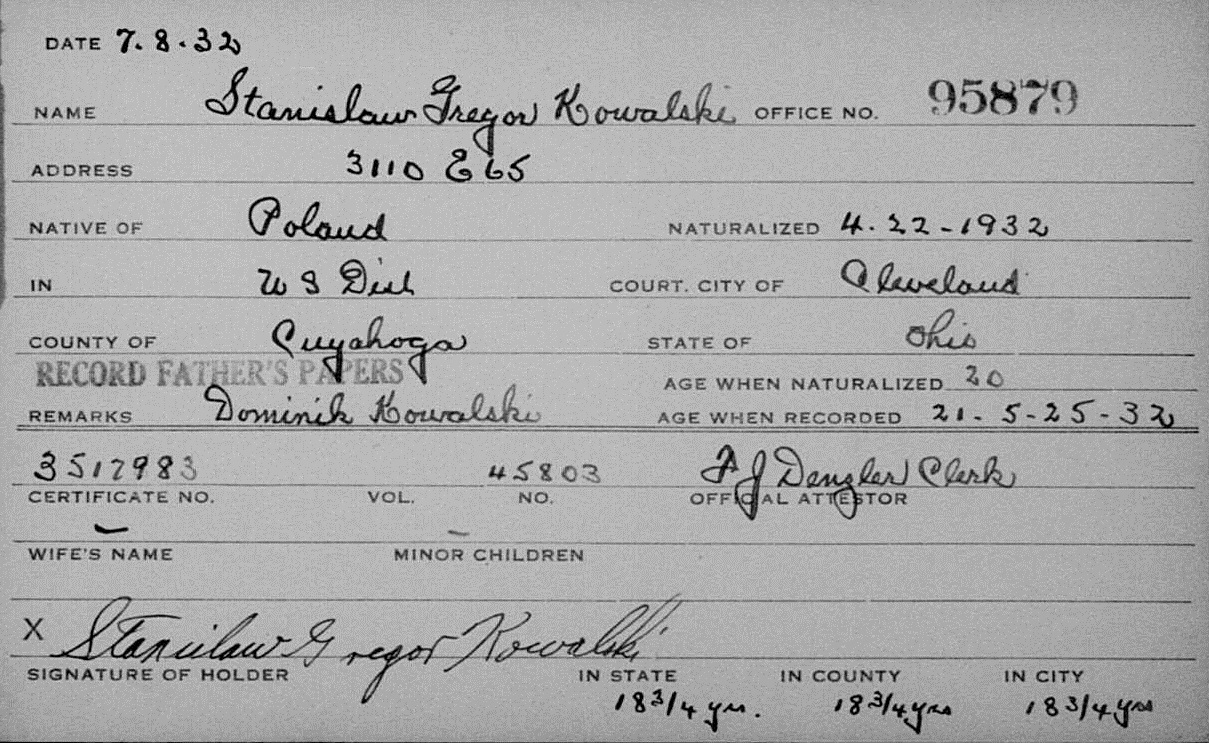 DATE 7.8.32
NAME Stanislaw Gregor Kowalski OFFICE NO. 95879
ADDRESS 3110 E 65
NATIVE OF Poland NATURALIZED 4.22-1932
IN U S Dist COURT. CITY OF Cleveland
COUNTY OF Cuyahoga STATE OF Ohio
RECORD FATHER'S PAPERS AGE WHEN NATURALIZED 20
REMARKS Dominik Kowalski AGE WHEN RECORDED 21-5-25-32
3517983 45803 F J Denzler Clerk
CERTIFICATE NO. VOL. NO. OFFICIAL ATTESTOR
WIFE'S NAME MINOR CHILDREN
X Stanislaw Gregor Kowalski
SIGNATURE OF HOLDER IN STATE IN COUNTY IN CITY
18 3/4 yrs. 18 3/4 yrs 18 3/4 yrs